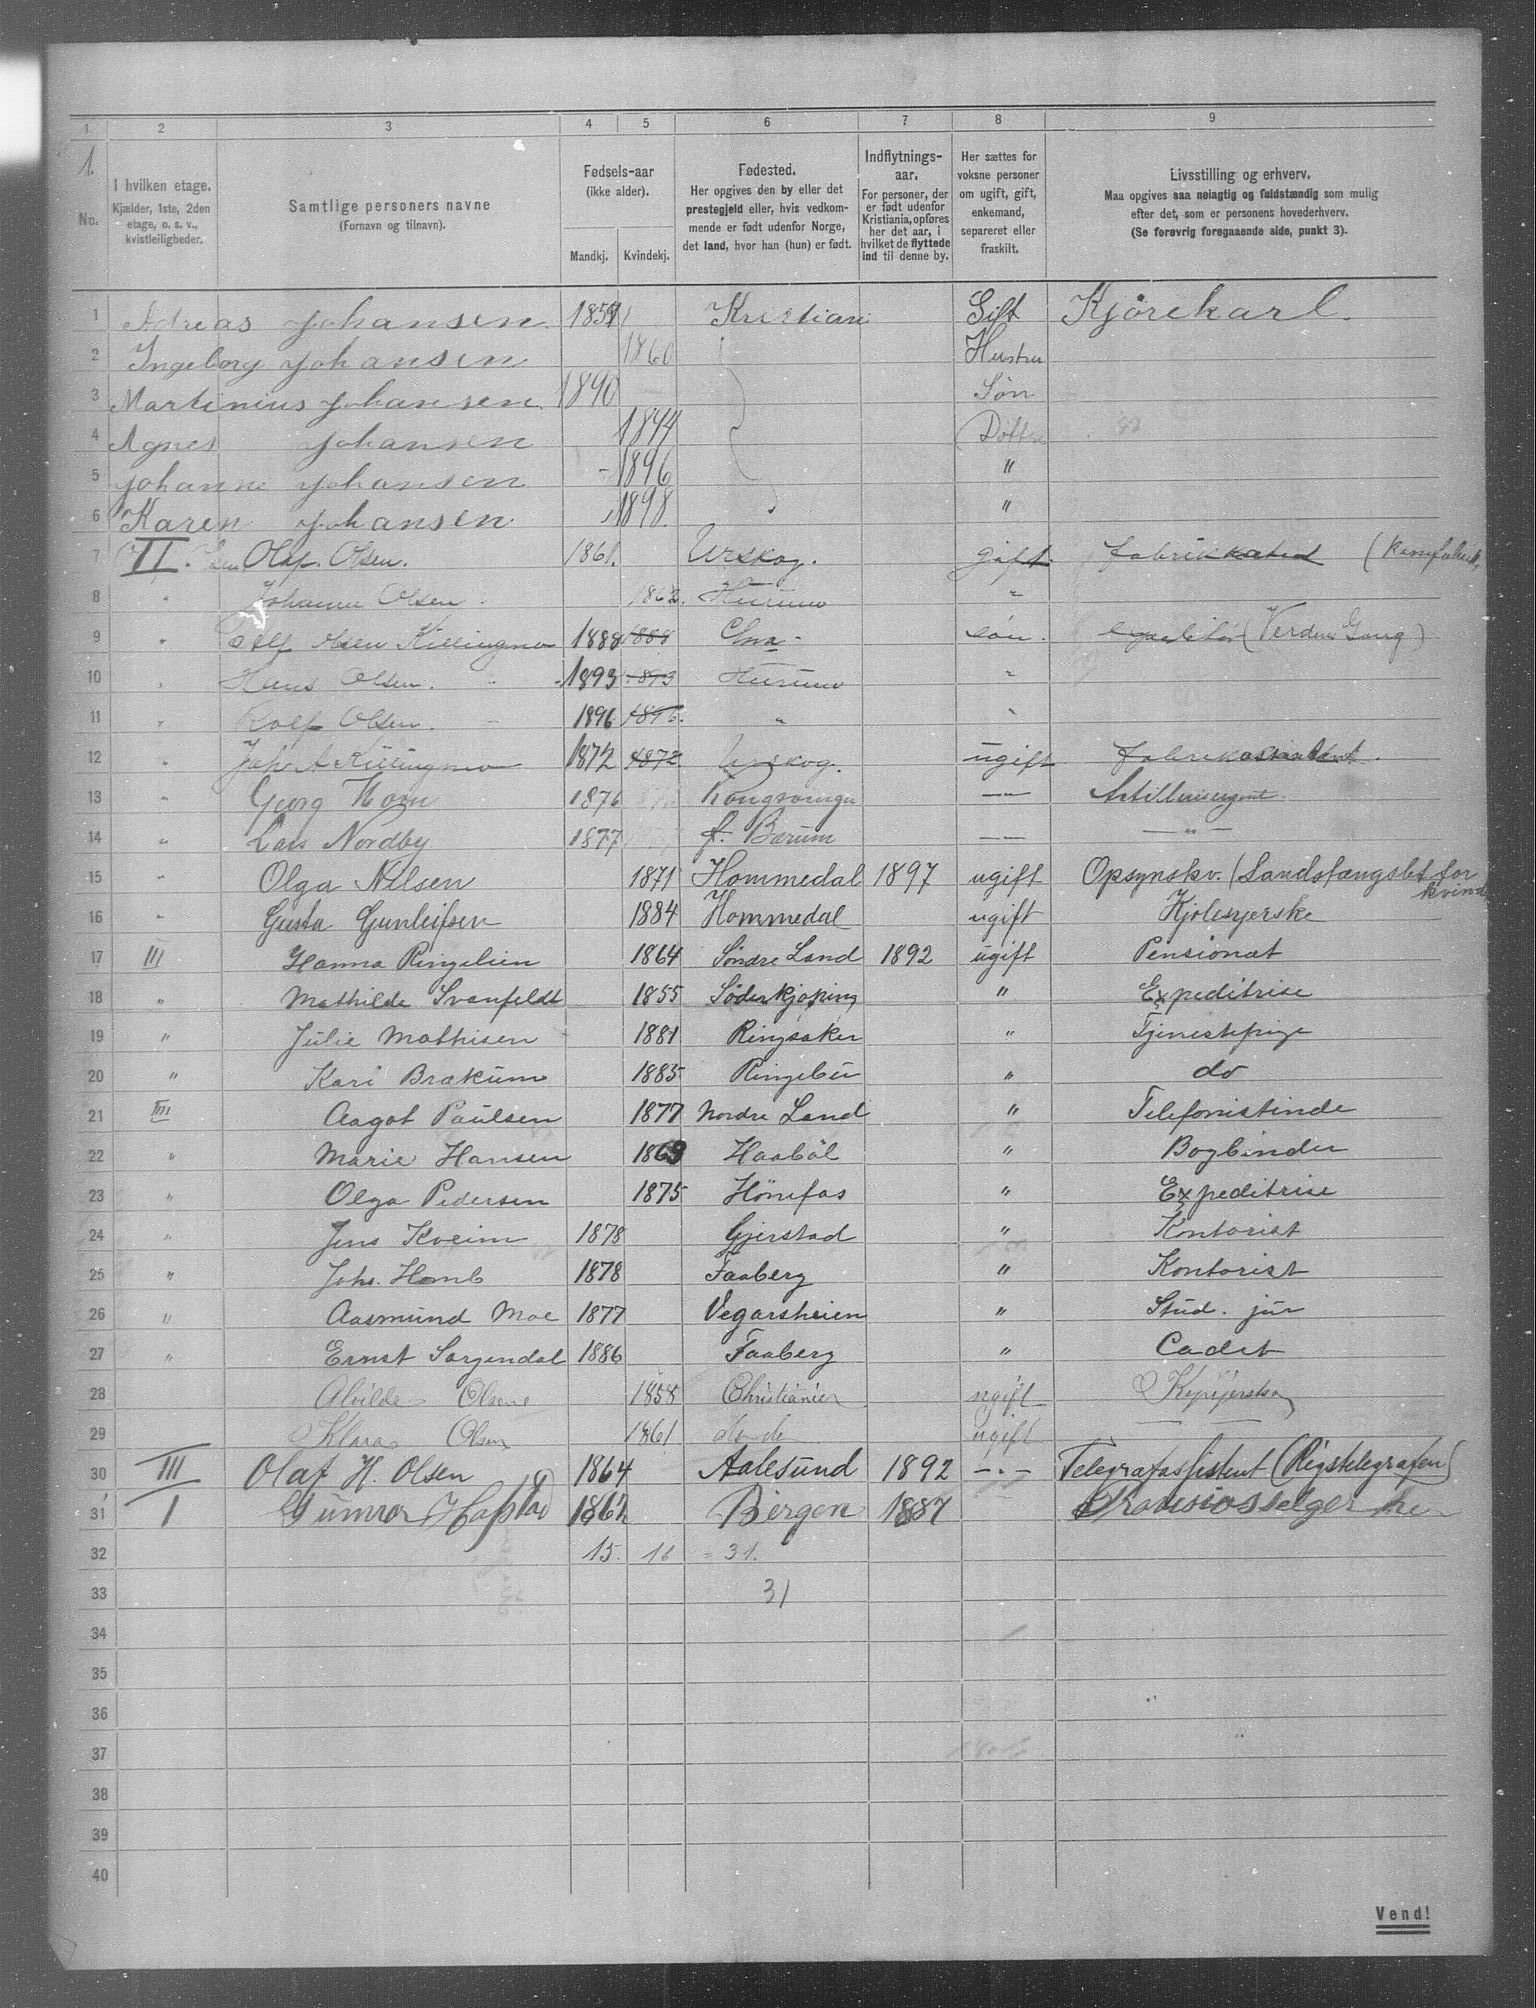 1 2 3 4 5 6 7 8 9
1.
No.
I hvilken etage.
Kjælder, 1ste, 2den
etage, o. s. v.,
kvistleiligheder.
Samtlige personers navne
(Fornavn og tilnavn).
Fødsels-aar
(ikke alder).
Mandkj. Kvindekj.
Fødested.
Her opgives den by eller det
prestegjeld eller, hvis vedkom-
mende er født udenfor Norge,
det land, hvor han (hun) er født.
Indflytnings-
aar.
For personer, der
er født udenfor
Kristiania, opføres
her det aar, i
hvilket de flyttede
ind til denne by.
Her sættes for
voksne personer
om ugift, gift,
enkemand,
separeret eller
fraskilt.
Livsstilling og erhverv.
Maa opgives saa nøiagtig og fuldstændig som mulig
efter det, som er personens hovederhverv.
(Se forøvrig foregaaende side, punkt 3).
1 Adreas Johansen Kristiani Gift Kjörekarl.
2 Ingeborg Johansen 1860 Hustru
3 Martinius Johansen 1890 Søn
4 Agnes Johansen 1894
5 Johanne Johansen 1896 "
6 Karen Johansen 1898 "
7 II. Olaf Olsen. 1861. Urskog. gift.
8 " Johanne Olsen 1862. Hurum "
9 " Alf Olsen Killingmo 1888 1888 søn. (Verdens Gang)
10 " Hans Olsen. 1893 1893 Hurum "
11 " Rolf Olsen. 1896 1896. " "
12 " Joh. A Killingmo 1872 1872 Urskog. ugift
13 " Georg Horn 1876 —"— Artillerisergent
14 " Lars Nordby 1877 Bærum —"— —"—
15 " Olga Nilsen 1871 Hommedal 1897 ugift Opsynskv. (Landsfængslet for
kvind
16 " Gusta Gunleifsen 1884 Hommedal ugift Kjolesyerske
17 III Hanna Ringelien 1864 Söndre Land 1892 ugift Pensionat
18 " Mathilde Svanfeldt 1855 Söderkjøping " Expeditrise
19 " Julie Mathisen 1881 Ringsaker " Tjenestepige
20 " Kari Brækum 1885 Ringebu " do
21 III Aagot Paulsen 1877 Nordre Land " Telefonistinde
22 " Marie Hansen 1869 Haaböl " Bogbinder
23 " Olga Pedersen 1875 Hönefos " Expeditrise
24 " Jens Kveim 1878 Gjerstad " Kontorist
25 " Johs. Homb 1878 Faaberg " Kontorist
26 " Aasmund Moe 1877 Vegarsheien " Stud. jur
27 " Ernst Sorgendal 1886 Faaberg " Cadet
28 Alvilde Olsen 1858 Christiania ugift
29 Klara Olsen 1861 ugift
30 III Olaf H. Olsen 1864 Aalesund 1892 —"— Telegrafassistent (Rigstelegrafen)
31 I 1862 Bergen 1887
32 15. 16 = 31.
33 31
34
35
36
37
38
39
40
Vend!